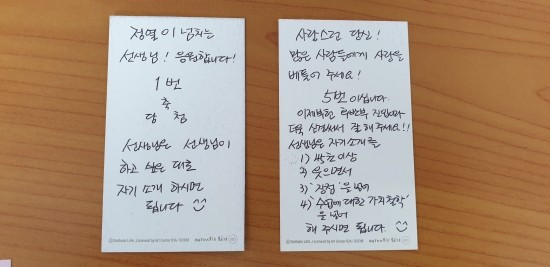 정열이 넘치는
선생님! 응원합니다!
1번
축
당첨
선생님은 선생님이
하고 싶은 대로
자기 소개 하시면
됩니다
사랑스런 당신!
많은 사람들에게 사랑을
베풀어 주세요!
5번 이십니다
더욱 신경써서 잘 해 주세요!!
선생님은 자기소개를
1) 쌀쌀 이상
2) 웃으면서
3) '장점'을 넣어
4) '수업에 대한 가치철학'
을 넣어
해 주시면 됩니다